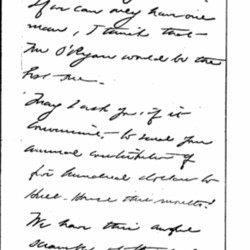 If we can only have one
man, I think that
Mr O'Ryan would be the
best one.
May I ask you, if it
convenient, to send your
annual contribution of
five hundred dollars to
Hull-House this month?
We have this awful